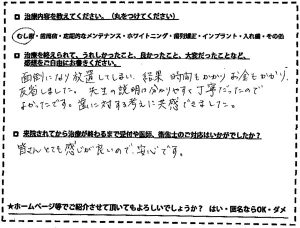 □ 治療内容を教えてください。(丸をつけてください)
むし歯・歯周病・定期的なメンテナンス・ホワイトニング・歯列矯正・インプラント・入れ歯・その他
□ 治療を終えられて、うれしかったこと、良かったこと、大変だったことなど、
感想をご自由にお書きください。
面倒になり放置してしまい、結果 時間もかかり お金もかかり、
反省しました。先生の説明は分かりやすく丁寧だったので
よかったです。歯に対する考えに共感できました。
□ 来院されてから治療が終わるまで受付や医師、衛生士のご対応はいかがでしたか?
皆さんとても感じが良いので、安心です。
★ホームページ等でご紹介させて頂いてもよろしいでしょうか? はい・匿名ならOK・ダメ